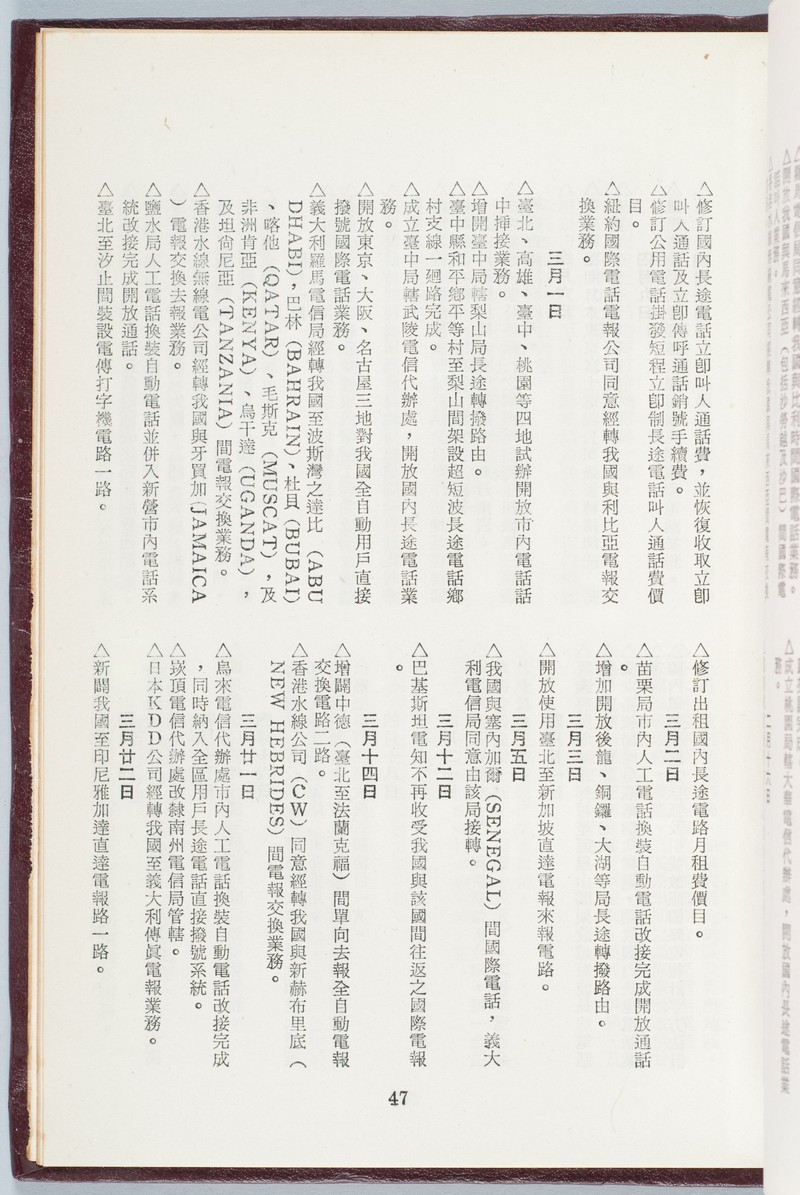 △修訂國內長途電話立卽叫人通話費，並恢復收取立卽
叫人通話及立卽傳呼通話銷號手續費。
△修訂公用電話掛發短程立卽制長途電話叫人通話費價
目。
△紐約國際電話電報公司同意經轉我國與利比亞電報交
換業務。
三月一日
△臺北、高雄、臺中、桃園等四地試辦開放市內電話話
中揷接業務。
△增開臺中局轄梨山局長途轉撥路由。
△臺中縣和平鄉平等村至梨山間架設超短波長途電話鄉
村支線一廻路完成。
△成立臺中局轄武陵電信代辦處，開放國內長途電話業
務。
△開放東京、大阪、名古屋三地對我國全自動用戶直接
撥號國際電話業務。
△義大利羅馬電信局經轉我國至波斯灣之達比（ABU
DHABI），巴林（BAHRAIN）、杜貝（BUBAI）
、喀他（QATAR）、毛斯克（MUSCAT），及
非洲肯亞（KENYA）、烏干達（UGANDA），
及坦尙尼亞（TANZANIA）間電報交換業務。
△香港水線無線電公司經轉我國與牙買加（JAMAICA
）電報交換去報業務。
△鹽水局人工電話換裝自動電話並併入新營市內電話系
統改接完成開放通話。
△臺北至汐止間裝設電傳打字機電路一路。
△修訂出租國內長途電路月租費價目。
三月二日
△苗栗局市內人工電話換裝自動電話改接完成開放通話
。
△增加開放後龍、銅鑼、大湖等局長途轉撥路由。
三月三日
△開放使用臺北至新加坡直達電報來報電路。
三月五日
△我國與塞內加爾（SENEGAL）間國際電話，義大
利電信局同意由該局接轉。
三月十二日
△巴基斯坦電知不再收受我國與該國間往返之國際電報
。
三月十四日
△增闢中德（臺北至法蘭克福）間單向去報全自動電報
交換電路二路。
△香港水線公司（CW）同意經轉我國與新赫布里底（
NEW HEBRIDES）間電報交換業務。
三月廿一日
△烏來電信代辦處市內人工電話換裝自動電話改接完成
，同時納入全區用戶長途電話直接撥號系統。
△崁頂電信代辦處改隸南州電信局管轄。
△日本KDD公司經轉我國至義大利傳眞電報業務。
三月廿二日
△新闢我國至印尼雅加達直達電報路一路。
47